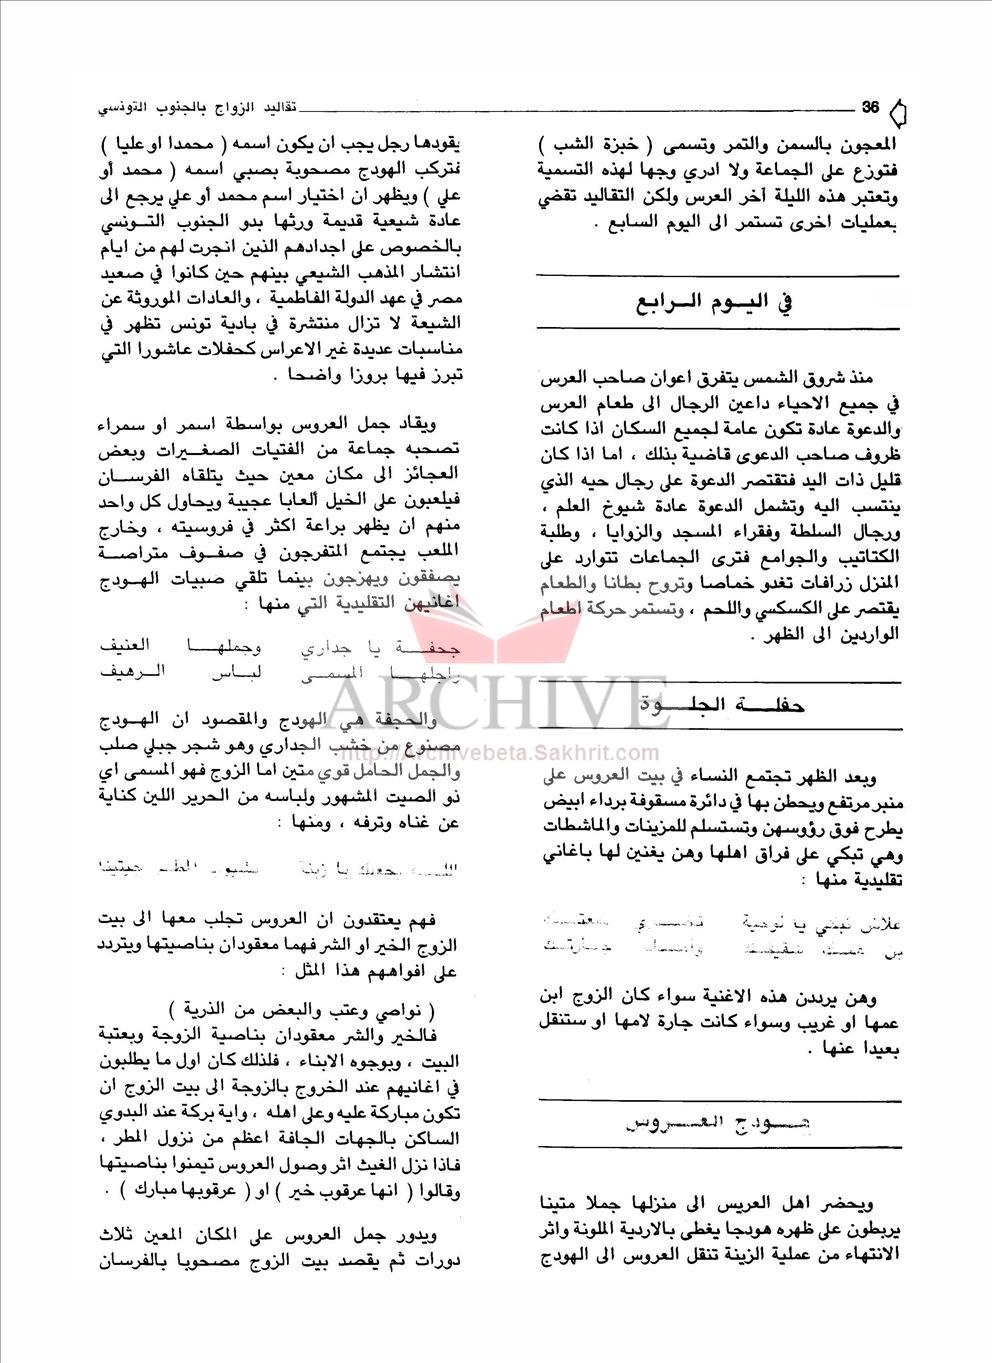 36 تقاليد الزواج بالجنوب التونسي
المعجون بالسمن والتمر وتسمى ( خبزة الشب )
فتوزع على الجماعة ولا ادري وجها لهذه التسمية
وتعتبر هذه الليلة آخر العرس ولكن التقاليد تقضي
بعمليات اخرى تستمر الى اليوم السابع .
في اليـوم الـرابع
منذ شروق الشمس يتفرق اعوان صاحب العرس
في جميع الاحياء داعين الرجال الى طعام العرس
والدعوة عادة تكون عامة لجميع السكان اذا كانت
ظروف صاحب الدعوى قاضية بذلك ، اما اذا كان
قليل ذات اليد فتقتصر الدعوة على رجال حيه الذي
ينتسب اليه وتشمل الدعوة عادة شيوخ العلم ،
ورجال السلطة وفقراء المسجد والزوايا ، وطلبة
الكتاتيب والجوامع فترى الجماعات تتوارد على
المنزل زرافات تغدو خماصا وتروح بطانا والطعام
يقتصر على الكسكسي واللحم ، وتستمر حركة اطعام
الواردين الى الظهر .
حفلـــة الجلـــوة
وبعد الظهر تجتمع النساء في بيت العروس على
منبر مرتفع ويحطن بها في دائرة مسقوفة برداء ابيض
يطرح فوق رؤوسهن وتستسلم للمزينات والماشطات
وهي تبكي على فراق اهلها وهن يغنين لها باغاني
تقليدية منها :
علاش تبكي يا
بن عمك شقيقك جارتك
وهن يرددن هذه الاغنية سواء كان الزوج ابن
عمها او غريب وسواء كانت جارة لامها او ستنقل
بعيدا عنها .
هـــودج العـــروس
ويحضر اهل العريس الى منزلها جملا متينا
يربطون على ظهره هودجا يغطى بالاردية الملونة واثر
الانتهاء من عملية الزينة تنقل العروس الى الهودج
يقودها رجل يجب ان يكون اسمه ( محمدا او عليا )
فتركب الهودج مصحوبة بصبي اسمه ( محمد أو
علي ) ويظهر ان اختيار اسم محمد أو علي يرجع الى
عادة شيعية قديمة ورثها بدو الجنوب التـونسي
بالخصوص على اجدادهم الذين انجرت لهم من ايام
انتشار المذهب الشيعي بينهم حين كانوا في صعيد
مصر في عهد الدولة الفاطمية ، والعادات الموروثة عن
الشيعة لا تزال منتشرة في بادية تونس تظهر في
مناسبات عديدة غير الاعراس كحفلات عاشورا التي
تبرز فيها بروزا واضحا .
ويقاد جمل العروس بواسطة اسمر او سمراء
تصحبه جماعة من الفتيات الصغيـرات وبعض
العجائز الى مكان معين حيث يتلقاه الفرســان
فيلعبون على الخيل ألعابا عجيبة ويحاول كل واحد
منهم ان يظهر براعة اكثر في فروسيته ، وخارج
الملعب يجتمع المتفرجون في صفـوف متراصـة
يصفقون ويهزجون بينما تلقي صبيات الهـودج
اغانيهن التقليدية التي منها :
جحفــة يا جداري وجملهــا العنيف
راجلهــا المسمـى لبــاس الــرهيف
والحجفة هي الهودج والمقصود ان الهـودج
مصنوع من خشب الجداري وهو شجر جبلي صلب
والجمل الحامل قوي متين اما الزوج فهو المسمى اي
ذو الصيت المشهور ولباسه من الحرير اللين كناية
عن غناه وترفه ، ومنها :
يا زينة
فهم يعتقدون ان العروس تجلب معها الى بيت
الزوج الخير او الشر فهما معقودان بناصيتها ويتردد
على افواههم هذا المثل :
( نواصي وعتب والبعض من الذرية )
فالخير والشر معقودان بناصية الزوجة وبعتبة
البيت ، وبوجوه الابناء ، فلذلك كان اول ما يطلبون
في اغانيهم عند الخروج بالزوجة الى بيت الزوج ان
تكون مباركة عليه وعلى اهله ، واية بركة عند البدوي
الساكن بالجهات الجافة اعظم من نزول المطر ،
فاذا نزل الغيث اثر وصول العروس تيمنوا بناصيتها
وقالوا ( انها عرقوب خير ) او ( عرقوبها مبارك ) .
ويدور جمل العروس على المكان المعين ثلاث
دورات ثم يقصد بيت الزوج مصحوبا بالفرسان
ARCHIVE
http://Archivebeta.Sakhrit.com